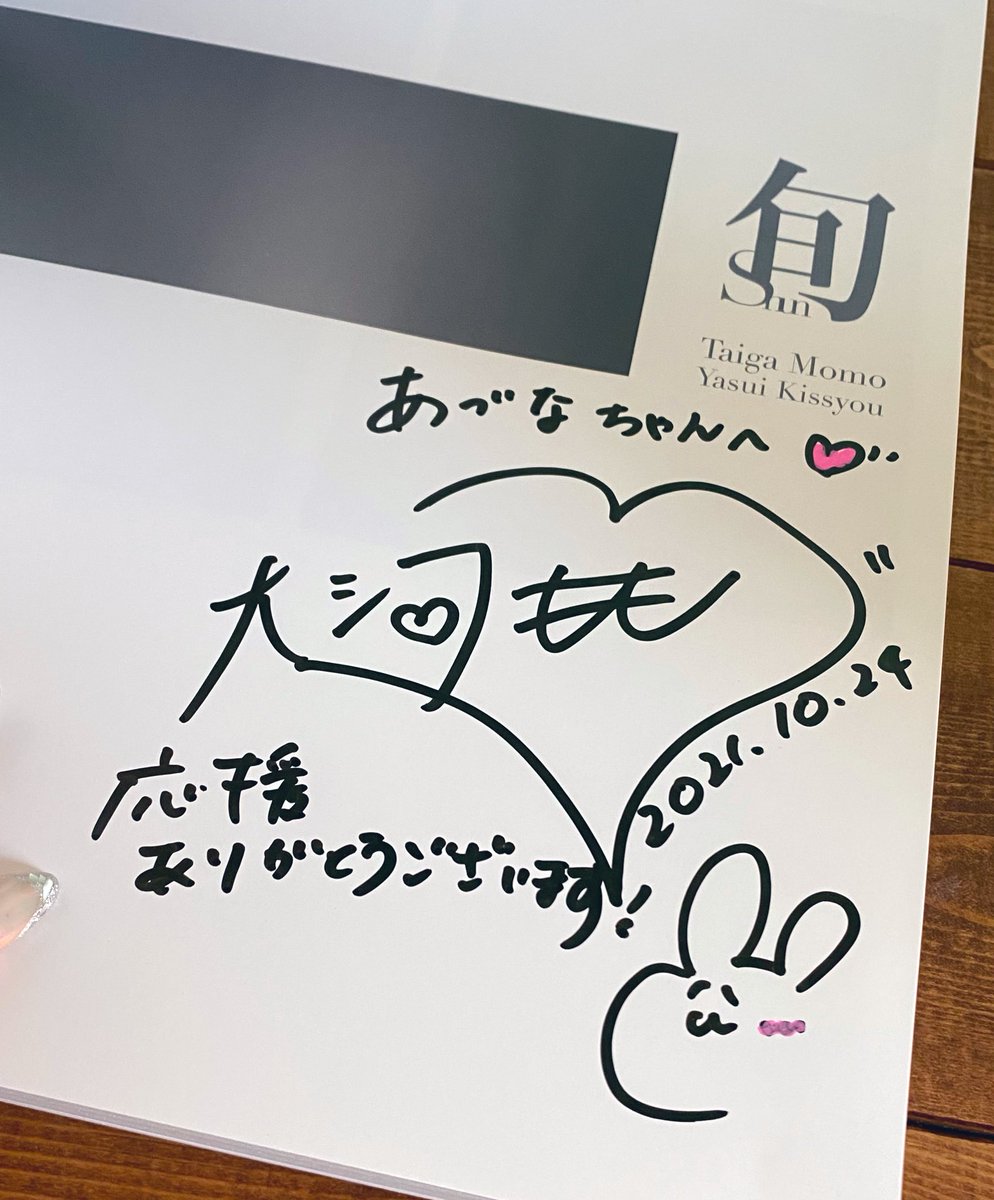 旬
Shun
Taiga Momo
Yasui Kissyou
あづなちゃんへ
大河もも
2021.10.24
応援
ありがとうございます!